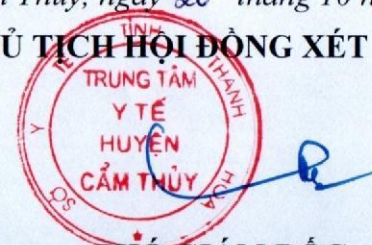 Thủy, ngày 20 tháng 10 n
Ủ TỊCH HỘI ĐỒNG XÉT
SỞ Y TẾ TỈNH THANH HÓA
TRUNG TÂM
Y TẾ
HUYỆN
CẨM THỦY